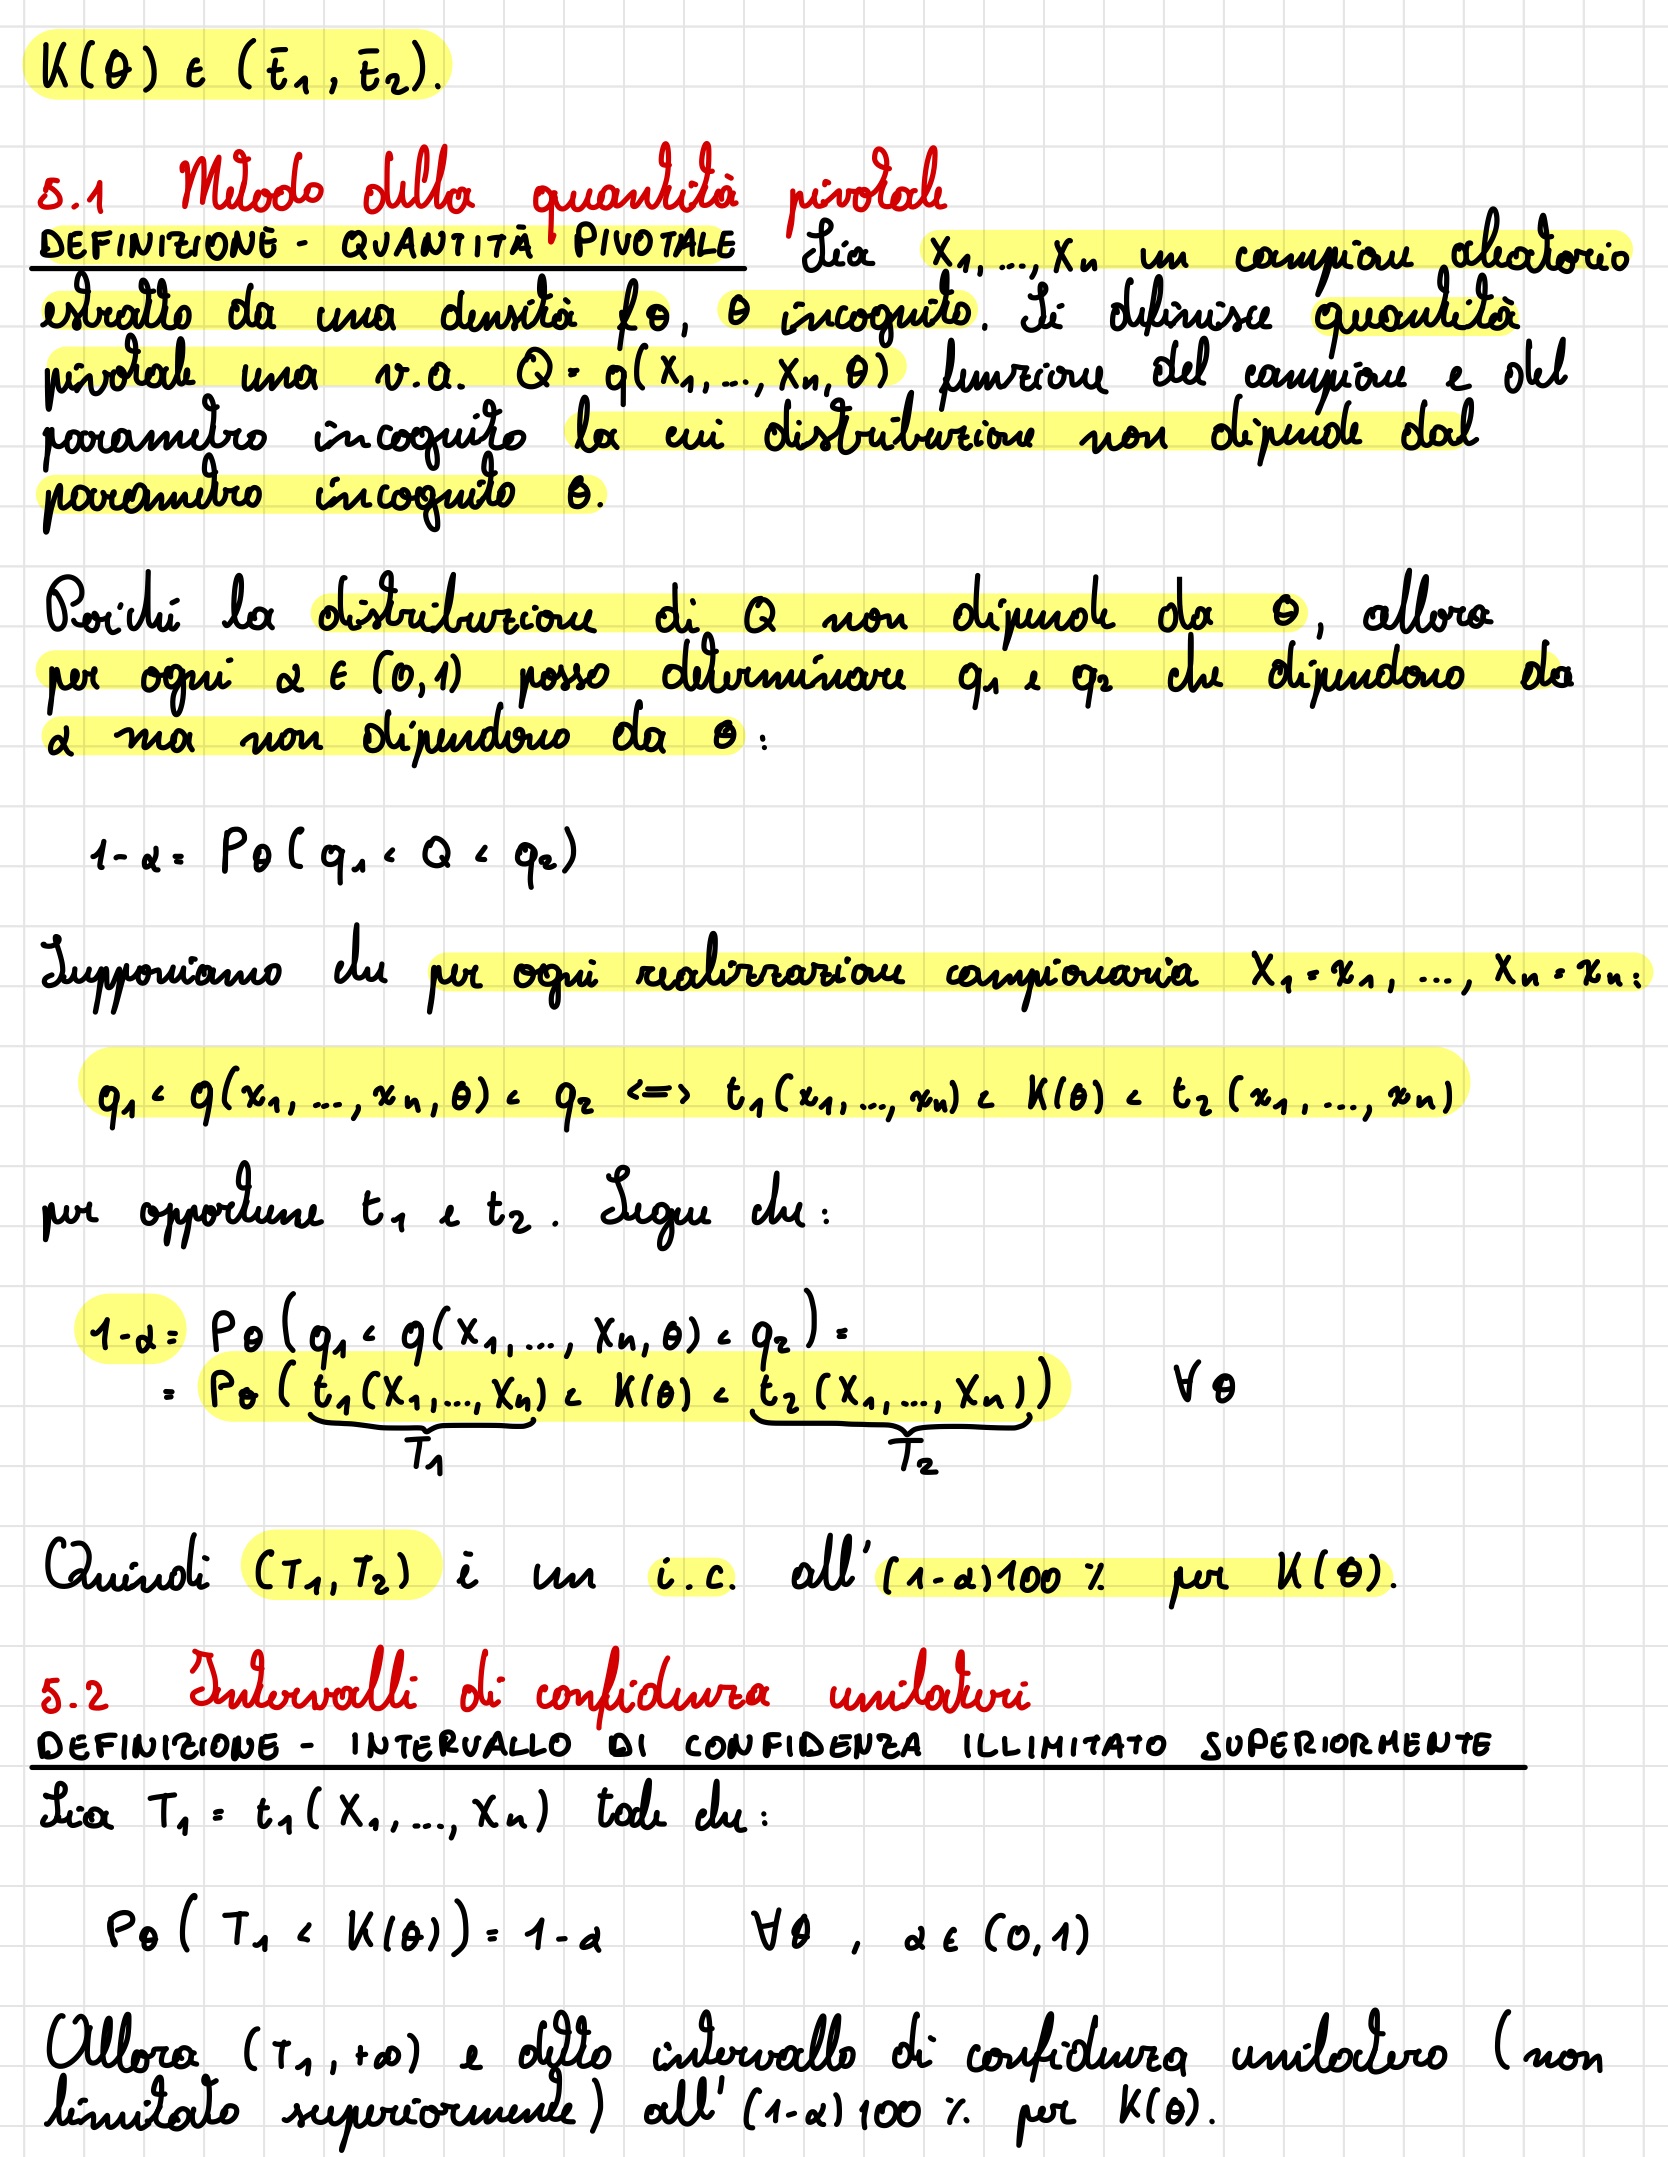 K(θ) ∈ (t̄₁, t̄₂).
5.1 Metodo della quantità pivotale
DEFINIZIONE - QUANTITÀ PIVOTALE Sia X₁, ..., Xₙ un campione aleatorio
estratto da una densità fθ, θ incognito. Si definisce quantità
pivotale una v.a. Q = q(X₁, ..., Xₙ, θ) funzione del campione e del
parametro incognito la cui distribuzione non dipende dal
parametro incognito θ.
Poiché la distribuzione di Q non dipende da θ, allora
per ogni α ∈ (0,1) posso determinare q₁ e q₂ che dipendono da
α ma non dipendono da θ:
1-α = Pθ(q₁ < Q < q₂)
Supponiamo che per ogni realizzazione campionaria X₁ = x₁, ..., Xₙ = xₙ:
q₁ < q(x₁, ..., xₙ, θ) < q₂ <=> t₁(x₁, ..., xₙ) < K(θ) < t₂(x₁, ..., xₙ)
per opportune t₁ e t₂. Segue che:
1-α = Pθ(q₁ < q(X₁, ..., Xₙ, θ) < q₂) =
= Pθ(t₁(X₁, ..., Xₙ) < K(θ) < t₂(X₁, ..., Xₙ)) ∀θ
T₁ T₂
Quindi (T₁, T₂) è un i.c. all'(1-α)100% per K(θ).
5.2 Intervalli di confidenza unilateri
DEFINIZIONE - INTERVALLO DI CONFIDENZA ILLIMITATO SUPERIORMENTE
Sia T₁ = t₁(X₁, ..., Xₙ) tale che:
Pθ(T₁ < K(θ)) = 1-α ∀θ, α ∈ (0,1)
Allora (T₁, +∞) e detto intervallo di confidenza unilatero (non
limitato superiormente) all'(1-α)100% per K(θ).